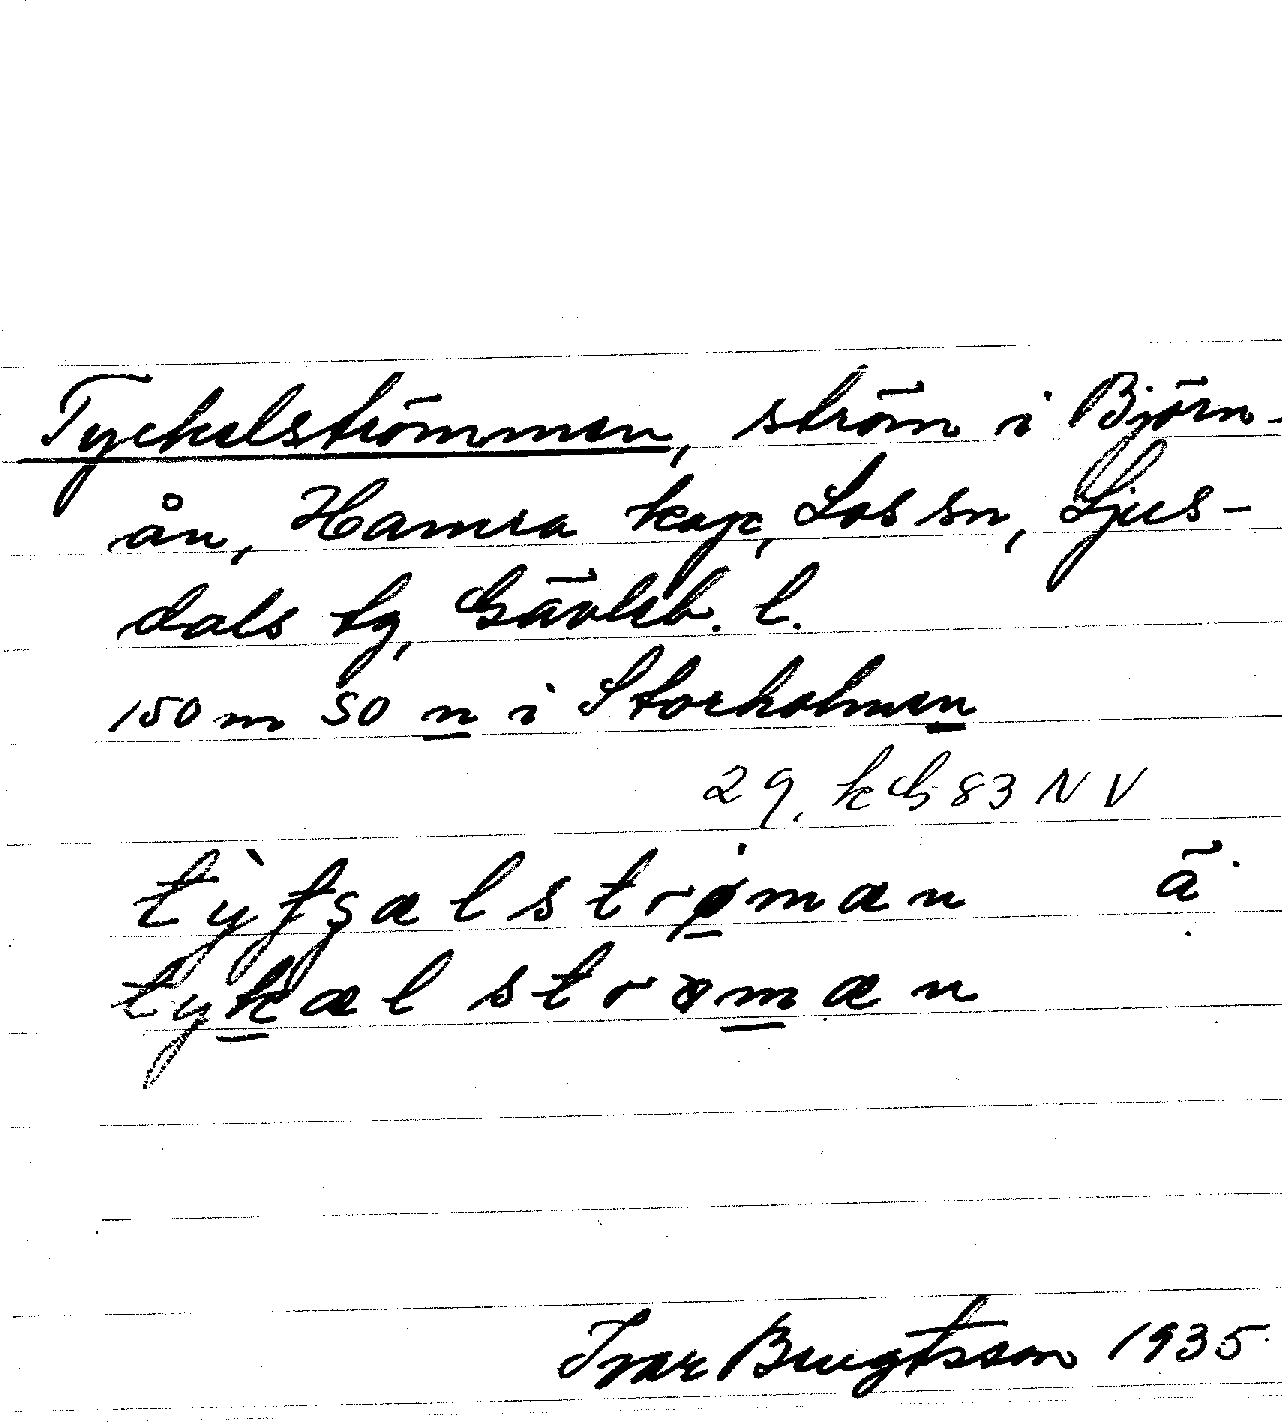 Tyckelströmmen, ström i Björn-
ån, Hamra kap, Los sn, Ljus-
dals tg, Gävleb. l.
150 m SO n i Storholmen
29. kcb 83 NV
tỳʃʒæl strømæn ä
tykæl strømæn
Ivar Bengtsson 1935